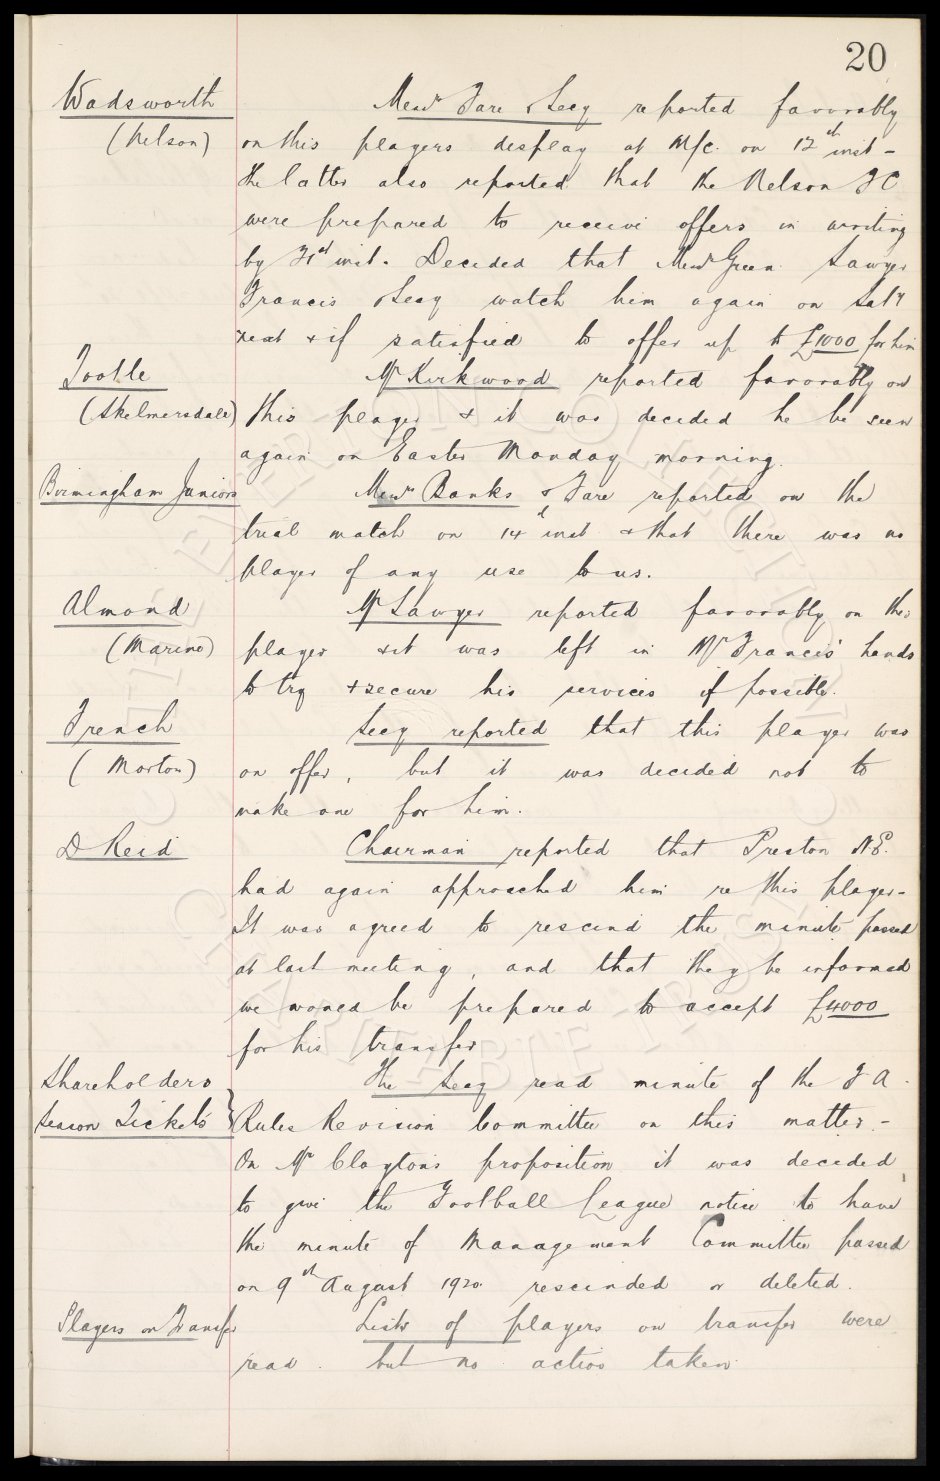 20
Wadsworth Messrs Fare & Secy reported favorably
(Nelson) on this players display at M/c. on 12th inst -
the latter also reported that the Nelson F C
were prepared to receive offers in writing
by 31st inst. Decided that Messrs Green Sawyer
Francis & Secy watch him again on Satdy
next & if satisfied to offer up to £1000 for him
Tootle Mr Kirkwood reported favorably on
(Skelmersdale) this player & it was decided he be seen
again on Easter Monday morning.
Birmingham Juniors Messrs Banks & Fare reported on the
trial match on 14th inst & that there was no
player of any use to us.
Almond Mr Sawyer reported favorably on this
(Marine) player & it was left in Mr Francis' hands
to try & secure his services if possible.
French Secy reported that this player was
(Morton) on offer, but it was decided not to
make one for him.
D Reid Chairman reported that Preston N.E.
had again approached him re this player -
It was agreed to rescind the minute passed
at last meeting, and that they be informed
we would be prepared to accept £4000
for his transfer
Shareholders The Secy read minute of the F A.
Season Tickets } Rules Revision Committee on this matter. -
On Mr Clayton's proposition it was decided,
to give the Football League notice to have
the minute of Management Committee passed
on 9th August 1920 rescinded or deleted.
Players on Transfer Lists of players on transfer were
read. but no action taken